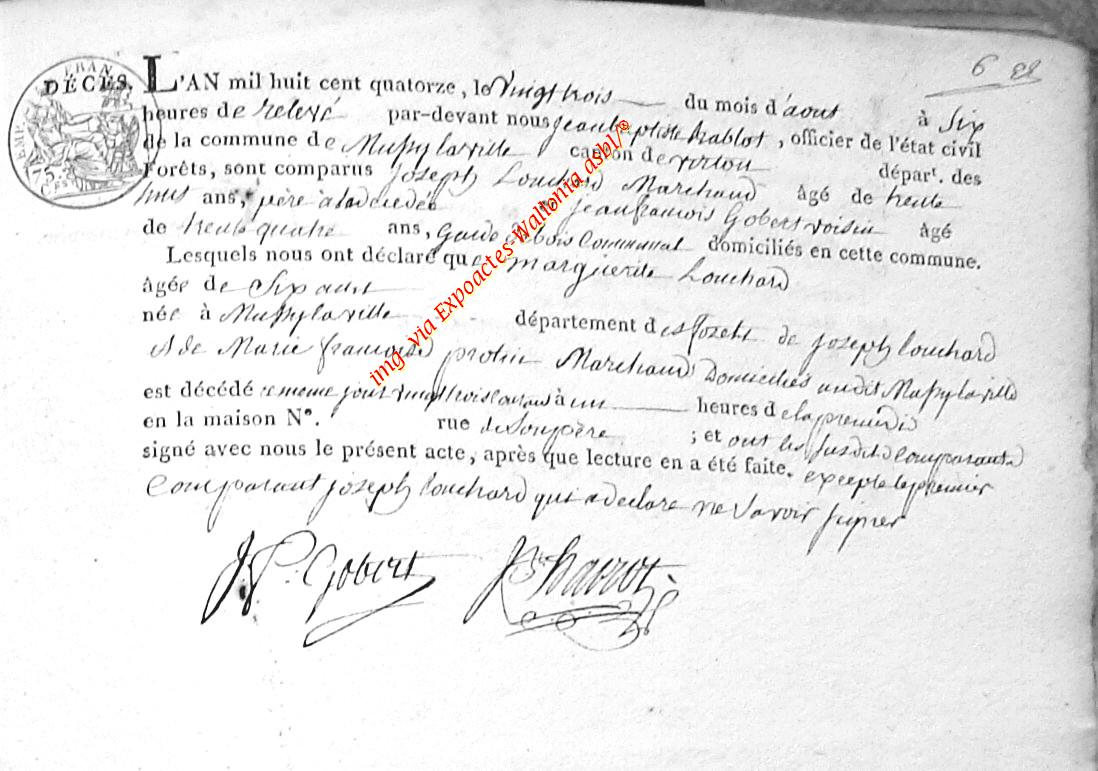 6 22
FRAN
EMP.
75.
DÉCÈS. L'AN mil huit cent quatorze, le vingttrois du mois d'aout à six
heures de relevé par-devant nous jean baptiste , officier de l'état civil
de la commune de Mussylaville canton de virton départ. des
Forêts, sont comparus joseph Louchard Marchand âgé de trente
trois ans, père à la décédée et jeanfrancois Gobert voisin âgé
de trente quatre ans, garde de bois Communal domiciliés en cette commune.
Lesquels nous ont déclaré que marguerite Louchard
âgée de Six ans
née à Mussylaville département des forets de joseph Louchard
et de Marie francoise protin Marchands Domiciliés audit Mussylaville
est décédé ce meme jour vingttrois aout à un heures de
en la maison N°. rue de ; et ont les susdits comparants
signé avec nous le présent acte, après que lecture en a été faite. excepté le premier
Comparant joseph Louchard qui a declare ne savoir signer
Gobert
img- via Expoactes-Wallonia asbl/®